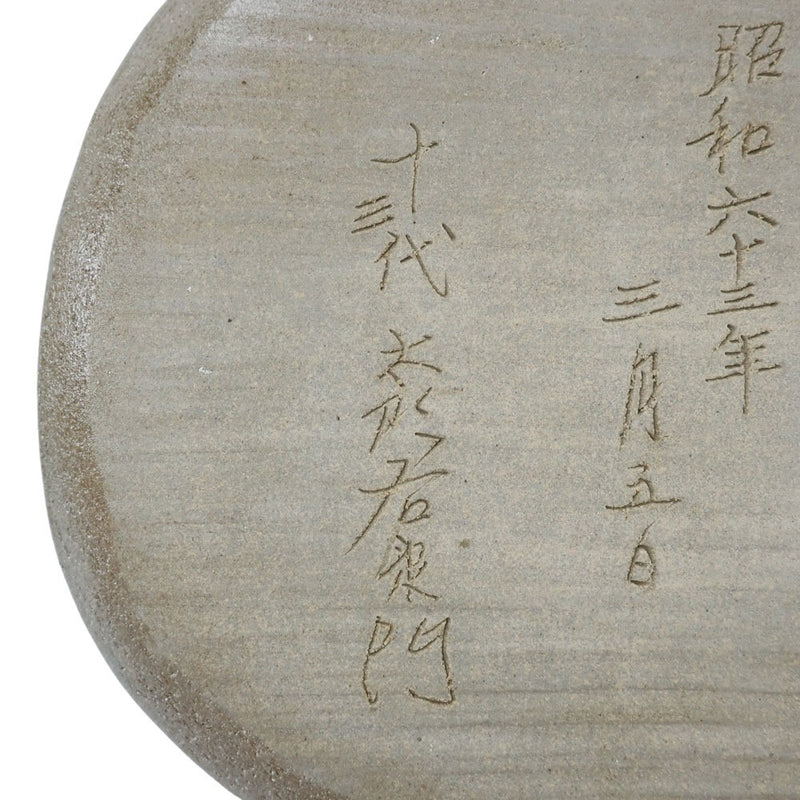 昭和六十三年
三月五日
十三代太郎右衛門